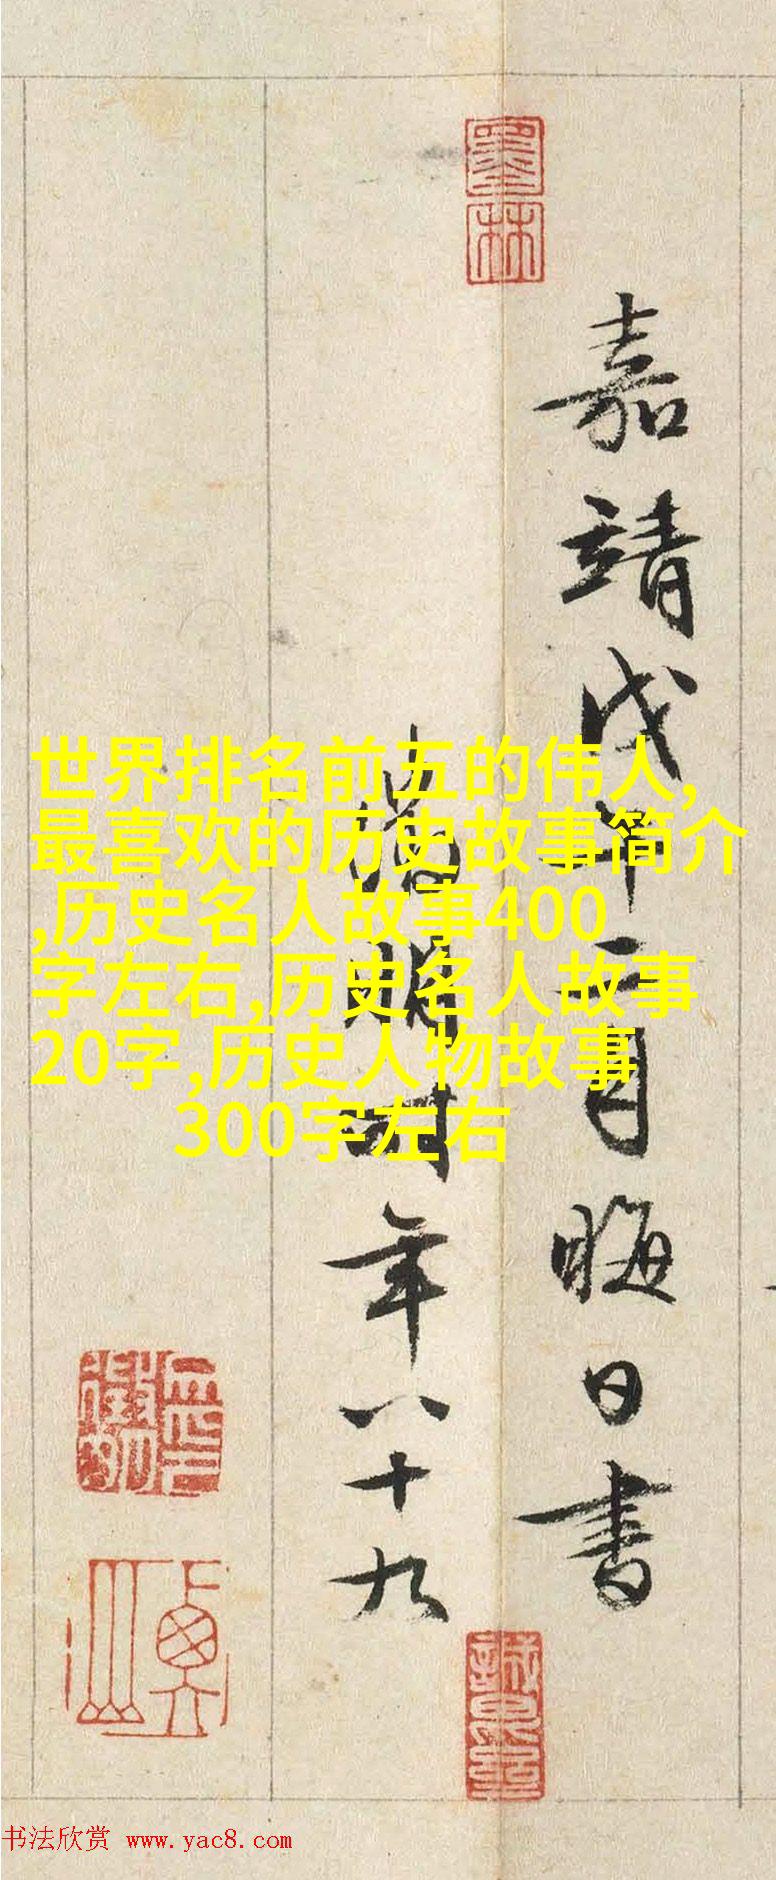 墨林
嘉靖戊午二月晦日書
徵明時年八十九
世界排名前五的伟人,
最喜欢的历史故事简介
,历史名人故事400
字左右,历史名人故事
20字,历史人物故事
300字左右
书法欣赏 www.yac8.com